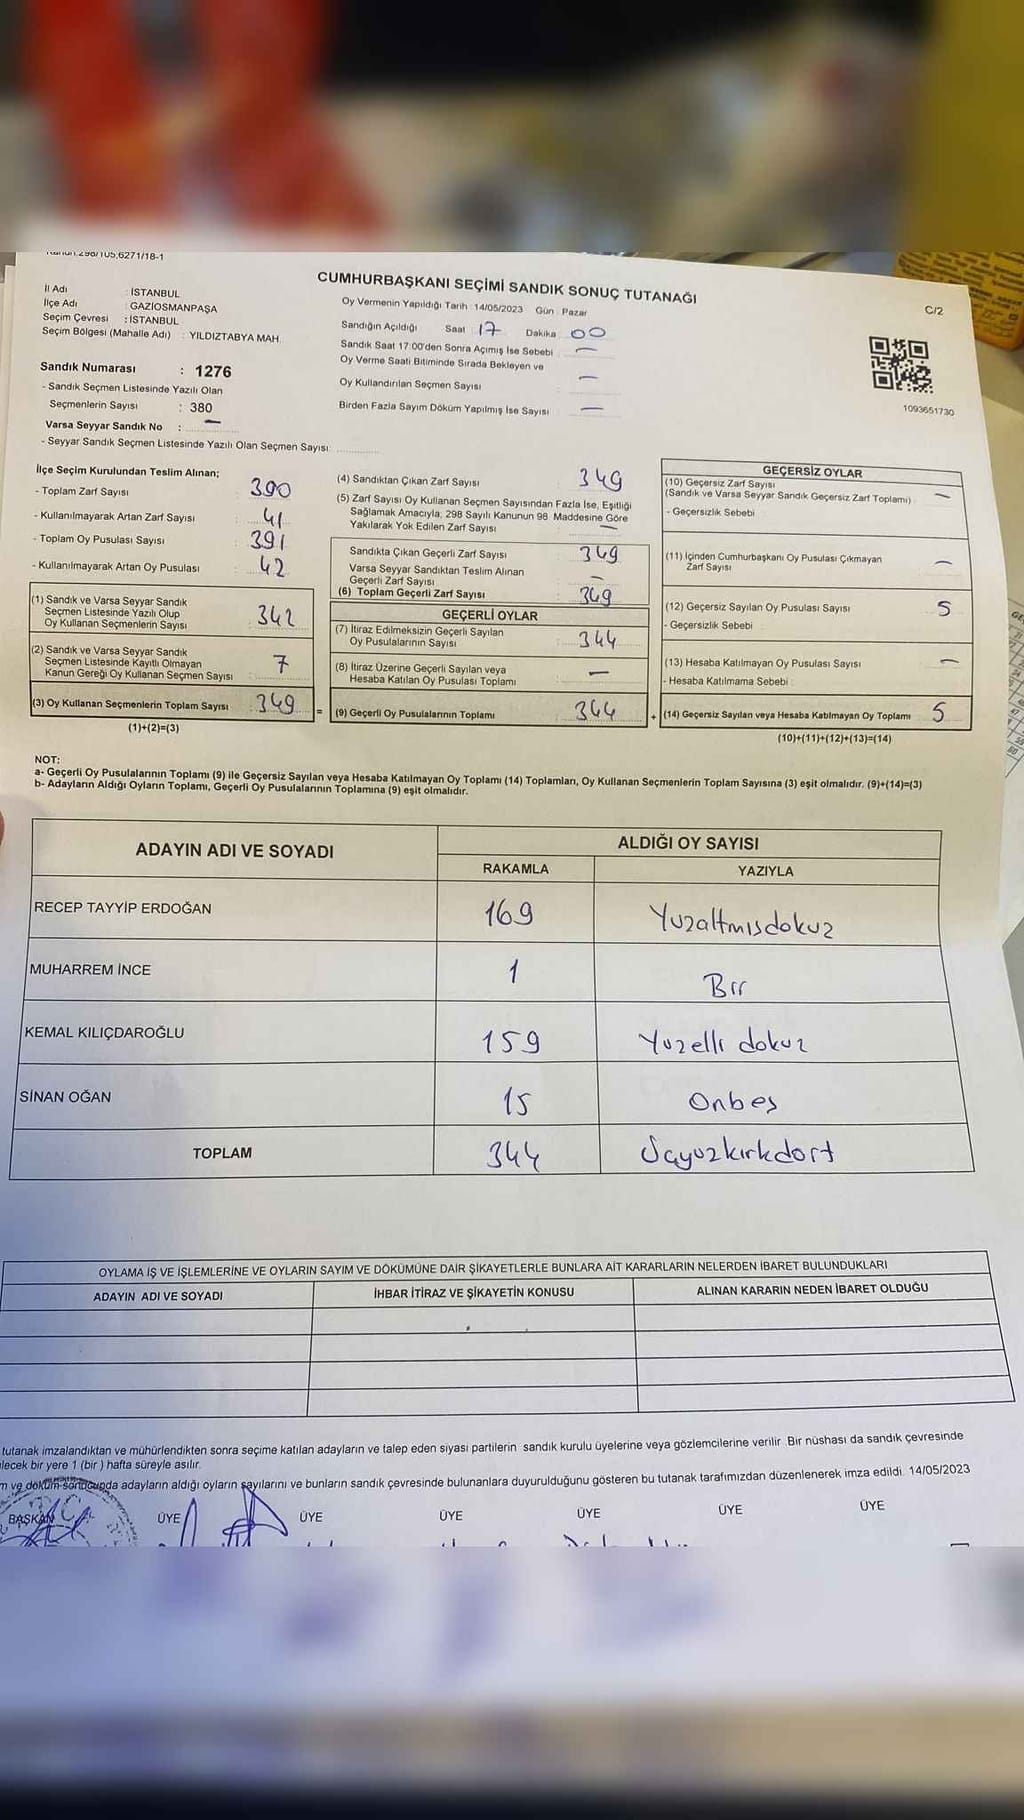 Kanun:298/105,6271/18-1
CUMHURBAŞKANI SEÇİMİ SANDIK SONUÇ TUTANAĞI
C/2
İl Adı : İSTANBUL
İlçe Adı : GAZİOSMANPAŞA
Seçim Çevresi : İSTANBUL
Seçim Bölgesi (Mahalle Adı) : YILDIZTABYA MAH.
Oy Vermenin Yapıldığı Tarih : 14/05/2023 Gün : Pazar
Sandığın Açıldığı Saat 17 Dakika 00
Sandık Saat 17:00'den Sonra Açımış İse Sebebi —
Oy Verme Saati Bitiminde Sırada Bekleyen ve
Oy Kullandırılan Seçmen Sayısı —
Birden Fazla Sayım Döküm Yapılmış İse Sayısı —
1093651730
Sandık Numarası : 1276
- Sandık Seçmen Listesinde Yazılı Olan
Seçmenlerin Sayısı : 380
Varsa Seyyar Sandık No : —
- Seyyar Sandık Seçmen Listesinde Yazılı Olan Seçmen Sayısı:
İlçe Seçim Kurulundan Teslim Alınan;
- Toplam Zarf Sayısı 390
- Kullanılmayarak Artan Zarf Sayısı 41
- Toplam Oy Pusulası Sayısı 391
- Kullanılmayarak Artan Oy Pusulası 42
(1) Sandık ve Varsa Seyyar Sandık
Seçmen Listesinde Yazılı Olup
Oy Kullanan Seçmenlerin Sayısı 342
(2) Sandık ve Varsa Seyyar Sandık
Seçmen Listesinde Kayıtlı Olmayan
Kanun Gereği Oy Kullanan Seçmen Sayısı 7
(3) Oy Kullanan Seçmenlerin Toplam Sayısı 349 =
(1)+(2)=(3)
(4) Sandıktan Çıkan Zarf Sayısı 349
(5) Zarf Sayısı Oy Kullanan Seçmen Sayısından Fazla İse, Eşitliği
Sağlamak Amacıyla, 298 Sayılı Kanunun 98. Maddesine Göre
Yakılarak Yok Edilen Zarf Sayısı —
Sandıkta Çıkan Geçerli Zarf Sayısı 349
Varsa Seyyar Sandıktan Teslim Alınan
Geçerli Zarf Sayısı —
(6) Toplam Geçerli Zarf Sayısı 349
GEÇERLİ OYLAR
(7) İtiraz Edilmeksizin Geçerli Sayılan
Oy Pusulalarının Sayısı 344
(8) İtiraz Üzerine Geçerli Sayılan veya
Hesaba Katılan Oy Pusulası Toplamı —
(9) Geçerli Oy Pusulalarının Toplamı 344 +
GEÇERSİZ OYLAR
(10) Geçersiz Zarf Sayısı
(Sandık ve Varsa Seyyar Sandık Geçersiz Zarf Toplamı) —
- Geçersizlik Sebebi :
(11) İçinden Cumhurbaşkanı Oy Pusulası Çıkmayan
Zarf Sayısı —
(12) Geçersiz Sayılan Oy Pusulası Sayısı 5
- Geçersizlik Sebebi :
(13) Hesaba Katılmayan Oy Pusulası Sayısı —
- Hesaba Katılmama Sebebi :
(14) Geçersiz Sayılan veya Hesaba Katılmayan Oy Toplamı 5
(10)+(11)+(12)+(13)=(14)
NOT:
a- Geçerli Oy Pusulalarının Toplamı (9) ile Geçersiz Sayılan veya Hesaba Katılmayan Oy Toplamı (14) Toplamları, Oy Kullanan Seçmenlerin Toplam Sayısına (3) eşit olmalıdır. (9)+(14)=(3)
b- Adayların Aldığı Oyların Toplamı, Geçerli Oy Pusulalarının Toplamına (9) eşit olmalıdır.
ADAYIN ADI VE SOYADI
ALDIĞI OY SAYISI
RAKAMLA YAZIYLA
RECEP TAYYİP ERDOĞAN 169 Yuzaltmısdokuz
MUHARREM İNCE 1 Bır
KEMAL KILIÇDAROĞLU 159 Yuzellı dokuz
SİNAN OĞAN 15 Onbeş
TOPLAM 344 Üçyuzkırkdort
OYLAMA İŞ VE İŞLEMLERİNE VE OYLARIN SAYIM VE DÖKÜMÜNE DAİR ŞİKAYETLERLE BUNLARA AİT KARARLARIN NELERDEN İBARET BULUNDUKLARI
ADAYIN ADI VE SOYADI İHBAR İTİRAZ VE ŞİKAYETİN KONUSU ALINAN KARARIN NEDEN İBARET OLDUĞU
tutanak imzalandıktan ve mühürlendikten sonra seçime katılan adayların ve talep eden siyasi partilerin sandık kurulu üyelerine veya gözlemcilerine verilir. Bir nüshası da sandık çevresinde
lecek bir yere 1 (bir ) hafta süreyle asılır.
m ve döküm sonucunda adayların aldığı oyların sayılarını ve bunların sandık çevresinde bulunanlara duyurulduğunu gösteren bu tutanak tarafımızdan düzenlenerek imza edildi. 14/05/2023
BAŞKAN ÜYE ÜYE ÜYE ÜYE ÜYE ÜYE